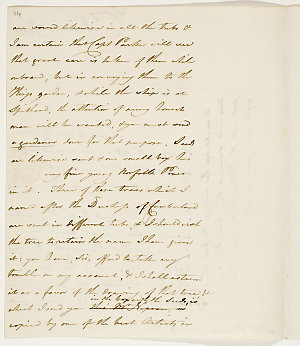 are sowed likewise in all the tubs &
I am certain that Capt Parker will see
that great care is taken of them while
onboard, but in conveying them to the
Kings garden, & while the ship is at
Spithead, the attention of every honest
man will be wanted, & you must send
a gardener down for that purpose. I send
you likewise sent one small box
very fine young Norfolk Pines
in it. Three of those trees which I
named after the Duchess of Cumberland
are sent in different tubs, & I should wish
the tree to retain the name I have given
it: you have, Sir, offered to take any
trouble on my account, & I shall esteem
it as a favor if the drawing of that tree &
in the box with the Seeds, is
which I send you
copied by one of the best Artists in